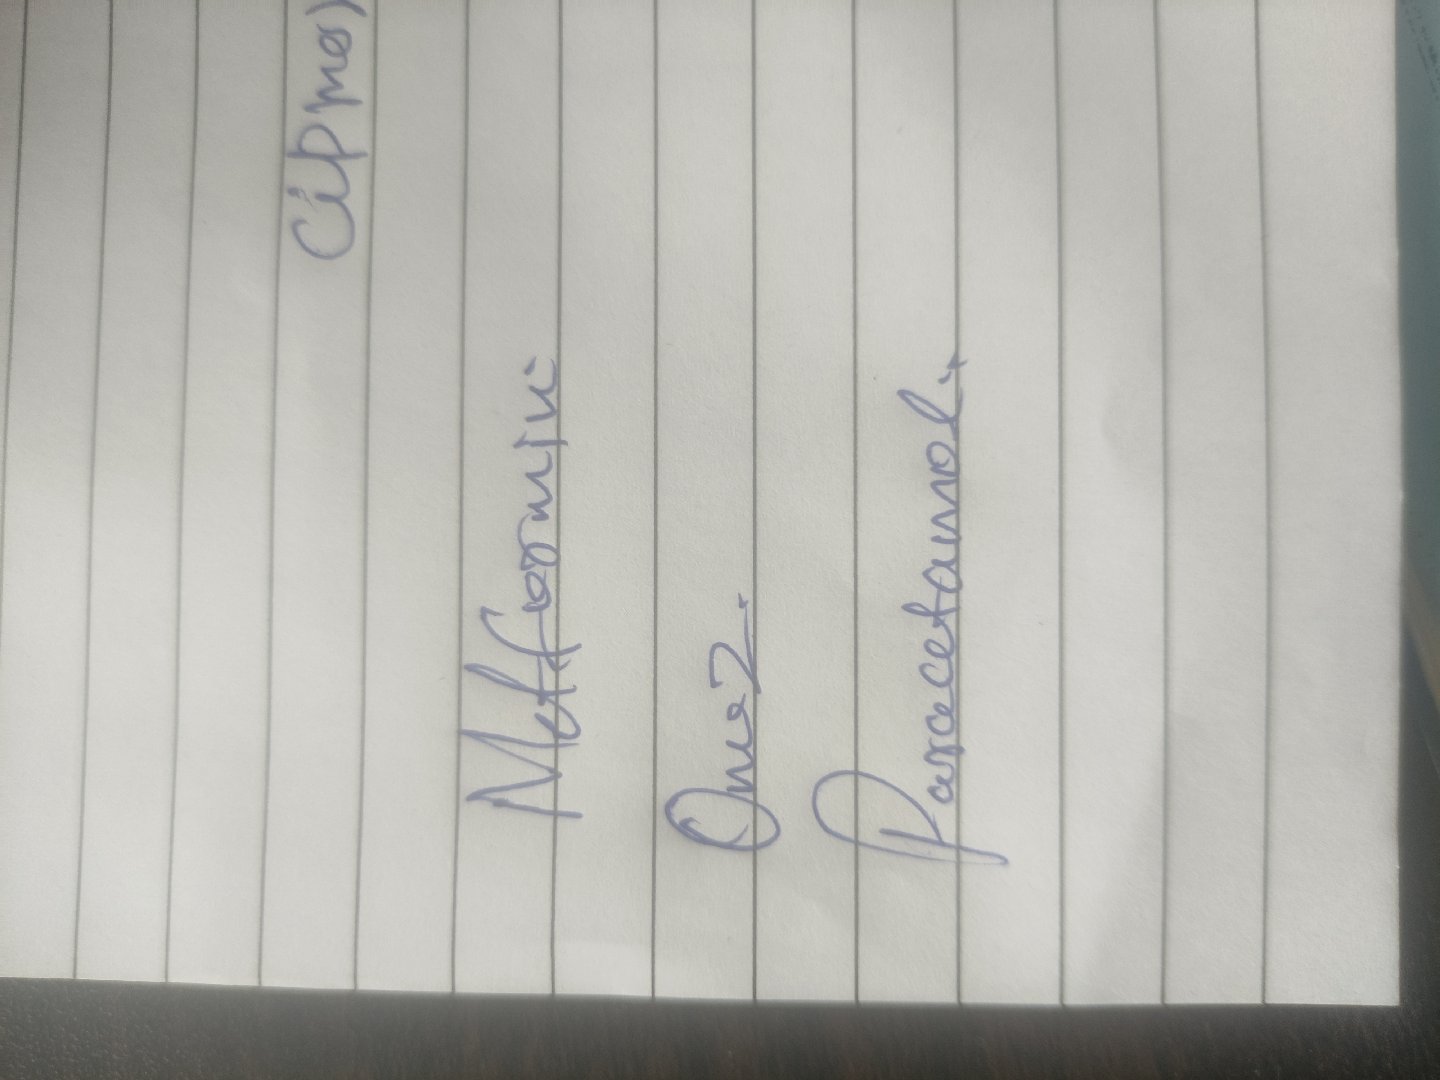 Metformin
Omez.
Paracetamol.